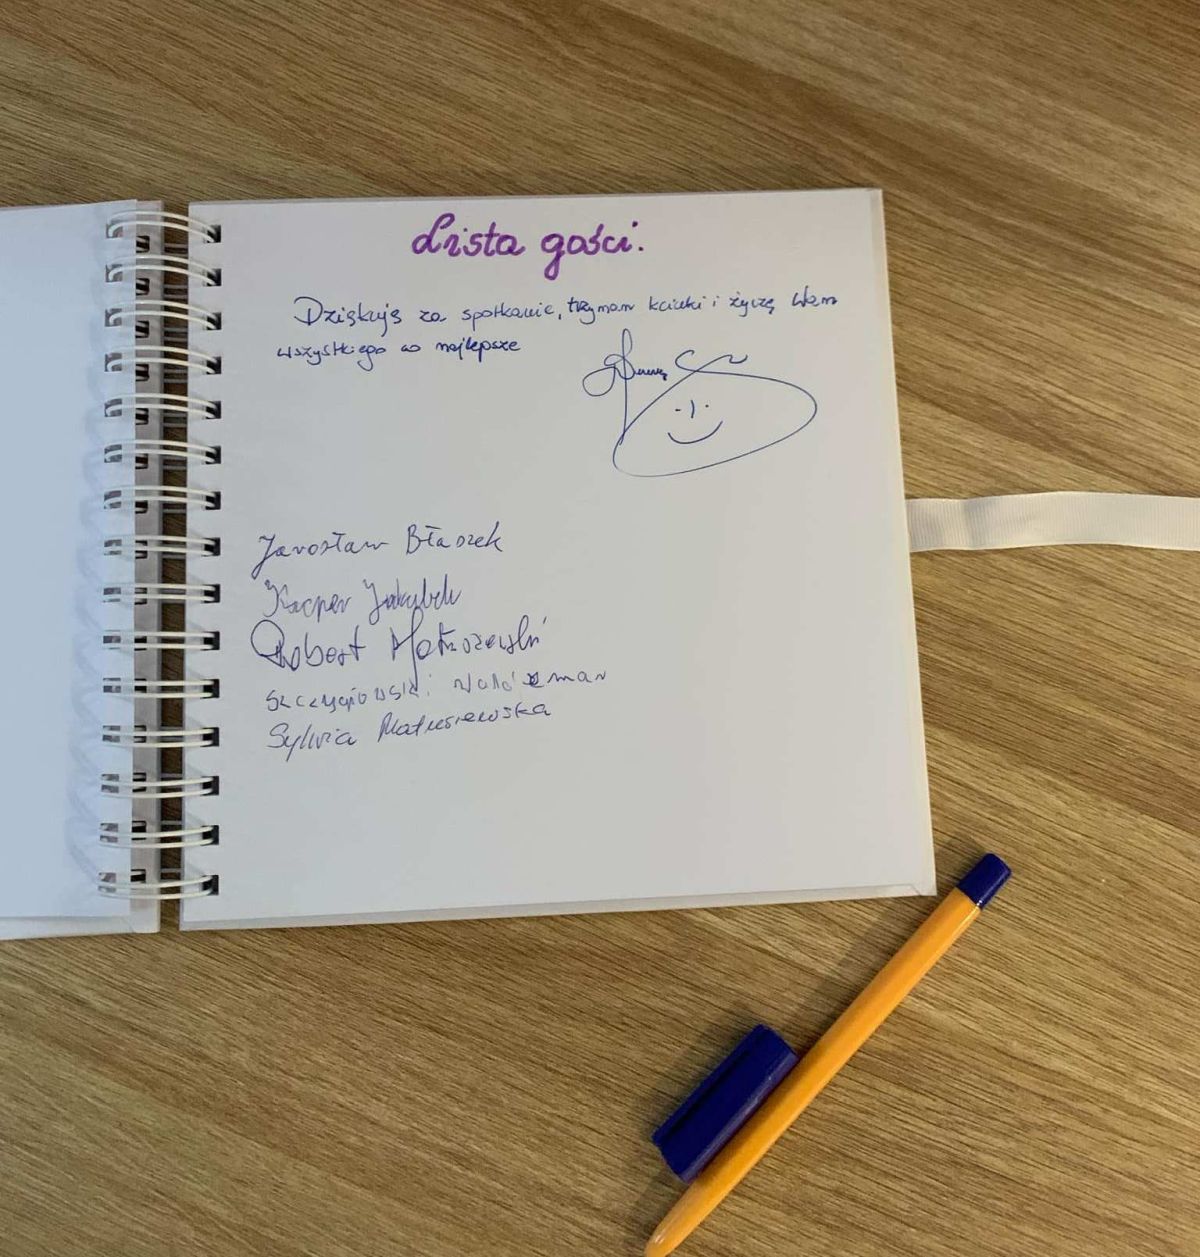 Lista gości.
Dziękuję za spotkanie, trzymam kciuki i życzę Wam
wszystkiego co najlepsze
Jarosław Błaszek
Kacper Jakubek
Robert
Sylwia Matusiewska